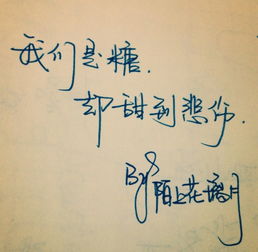 我们是糖.
却甜到悲伤.
By陌上花语月